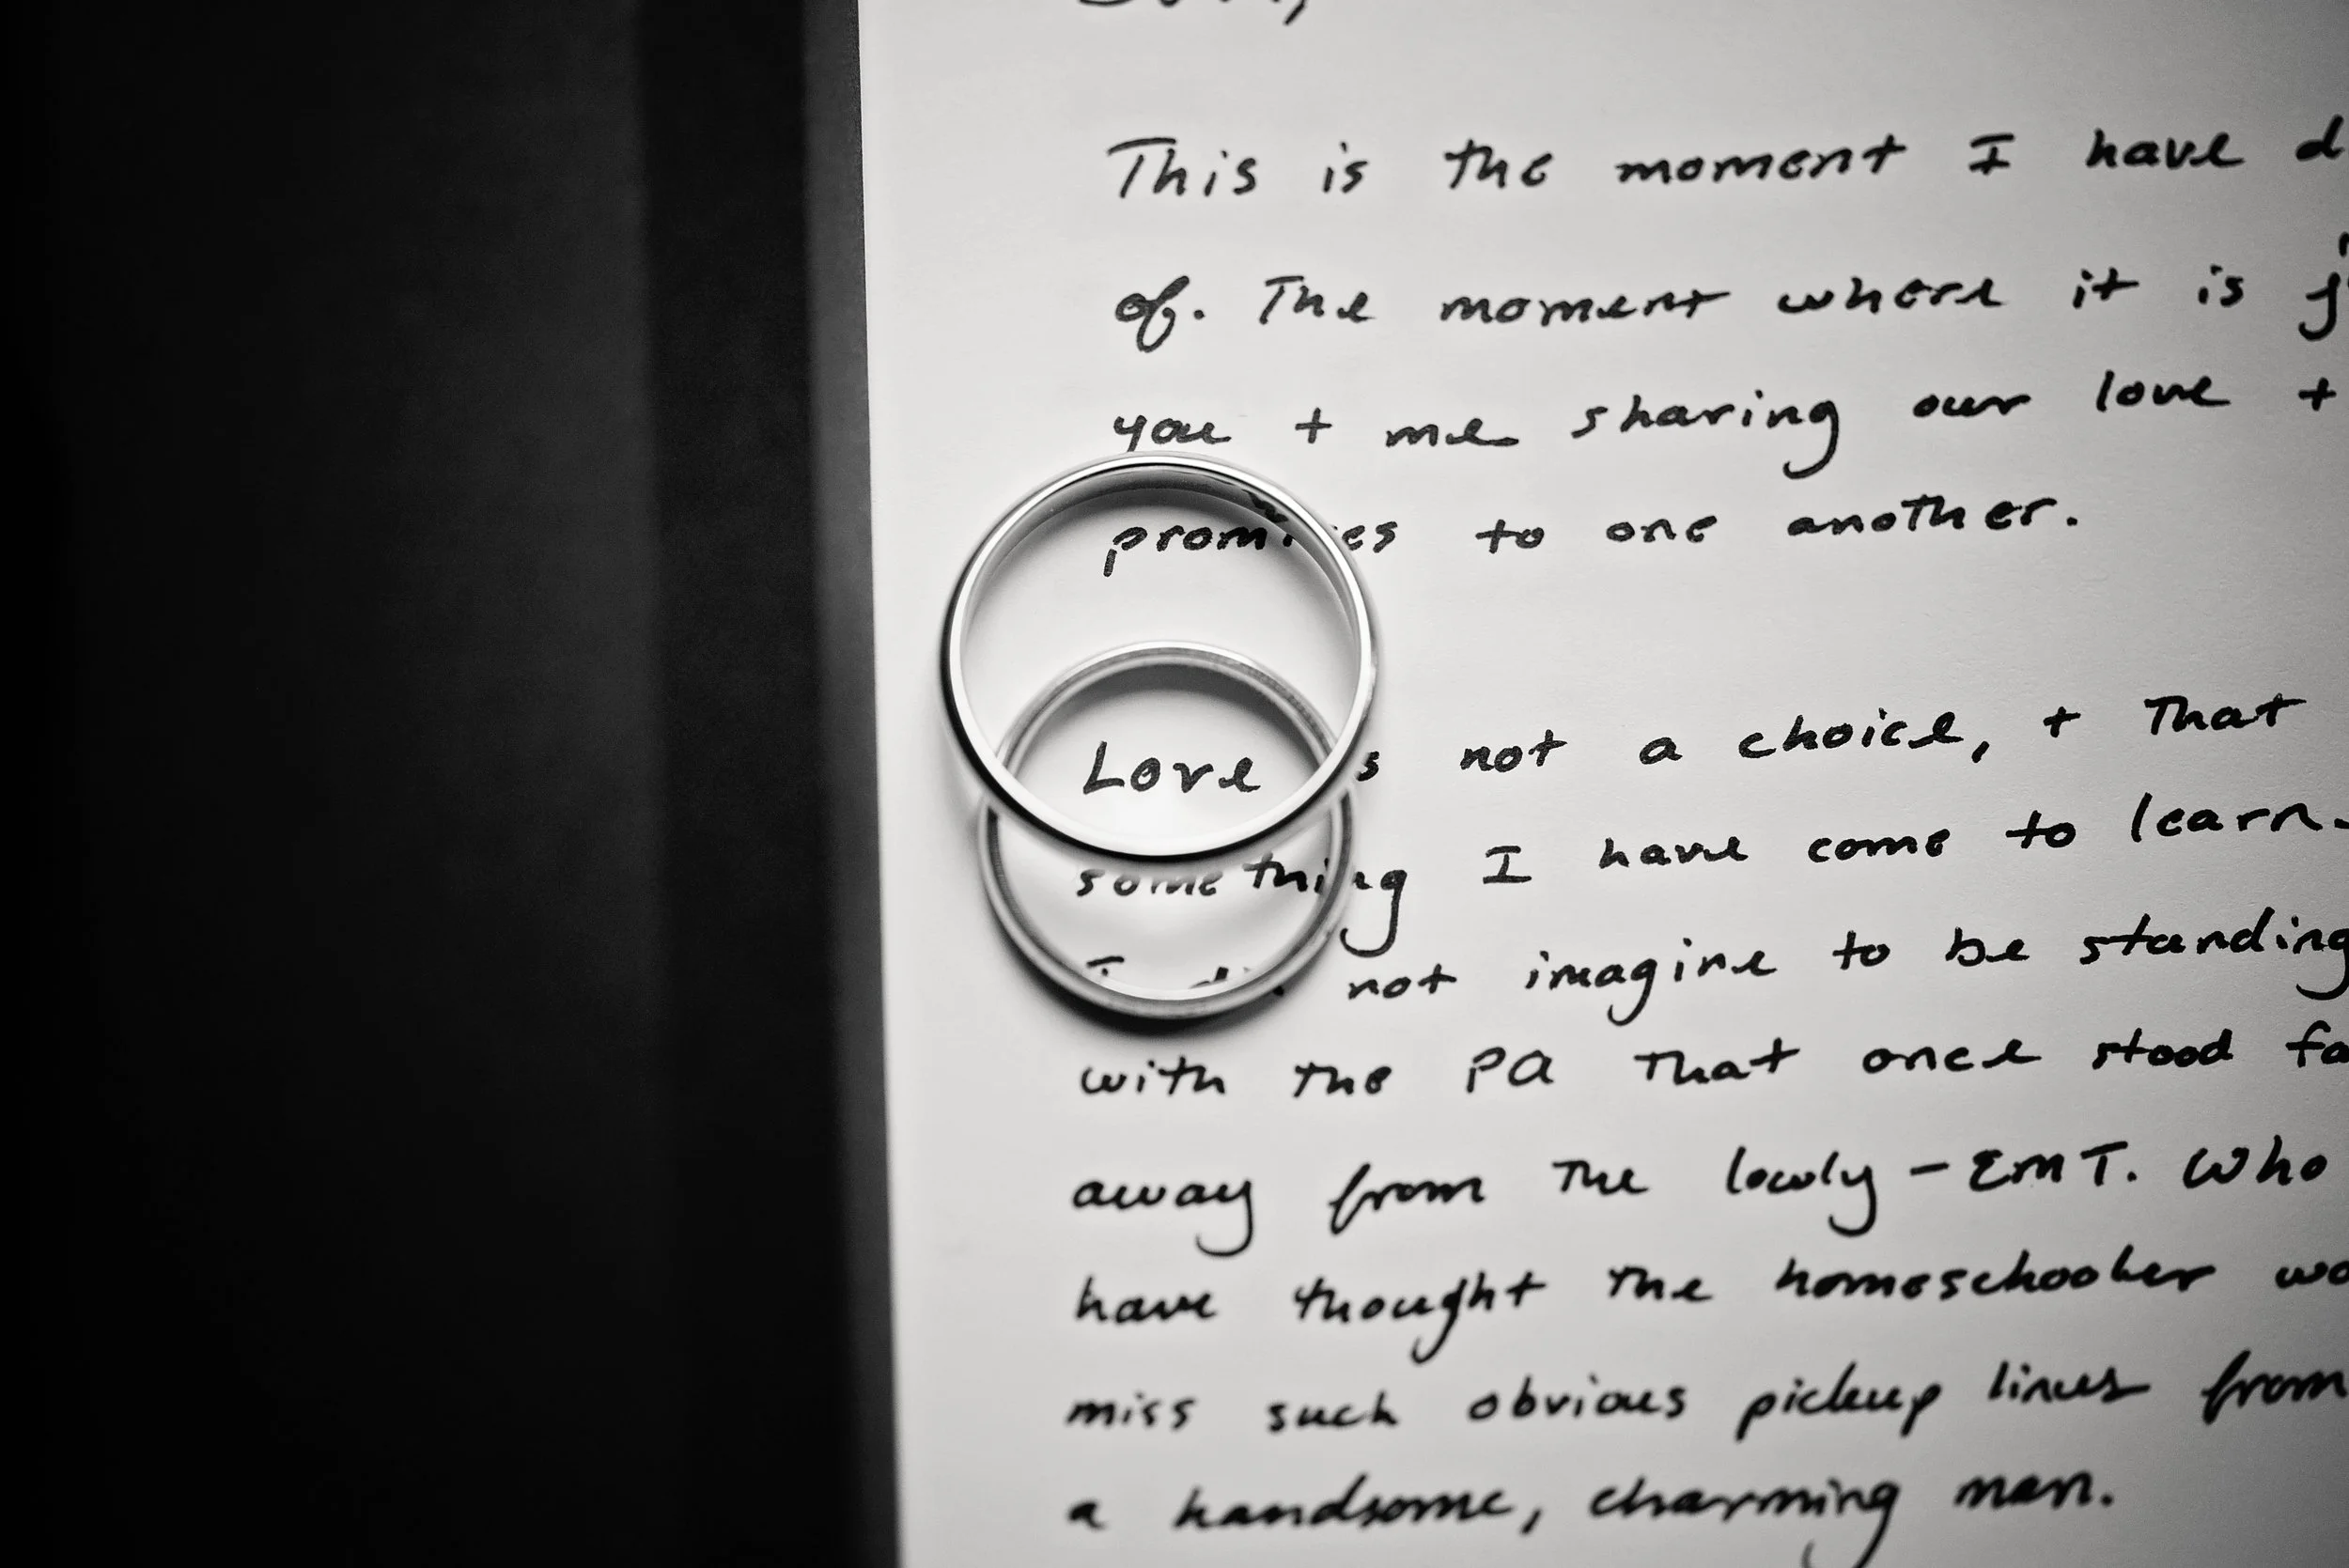 This is the moment I have
of. The moment where it is
you + me sharing our love +
to one another.
Love not a choice, + That
something I have come to learn.
not imagine to be standing
with the PA That once stood
away from The lowly - EMT. Who
have thought The homeschooler
miss such obvious pickup lines from
a handsome, charming man.